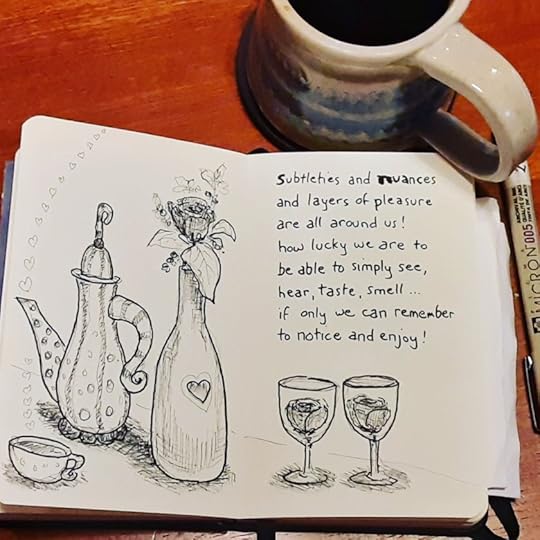 Subtleties and nuances
and layers of pleasure
are all around us!
how lucky we are to
be able to simply see,
hear, taste, smell ...
if only we can remember
to notice and enjoy!
MICRON 005